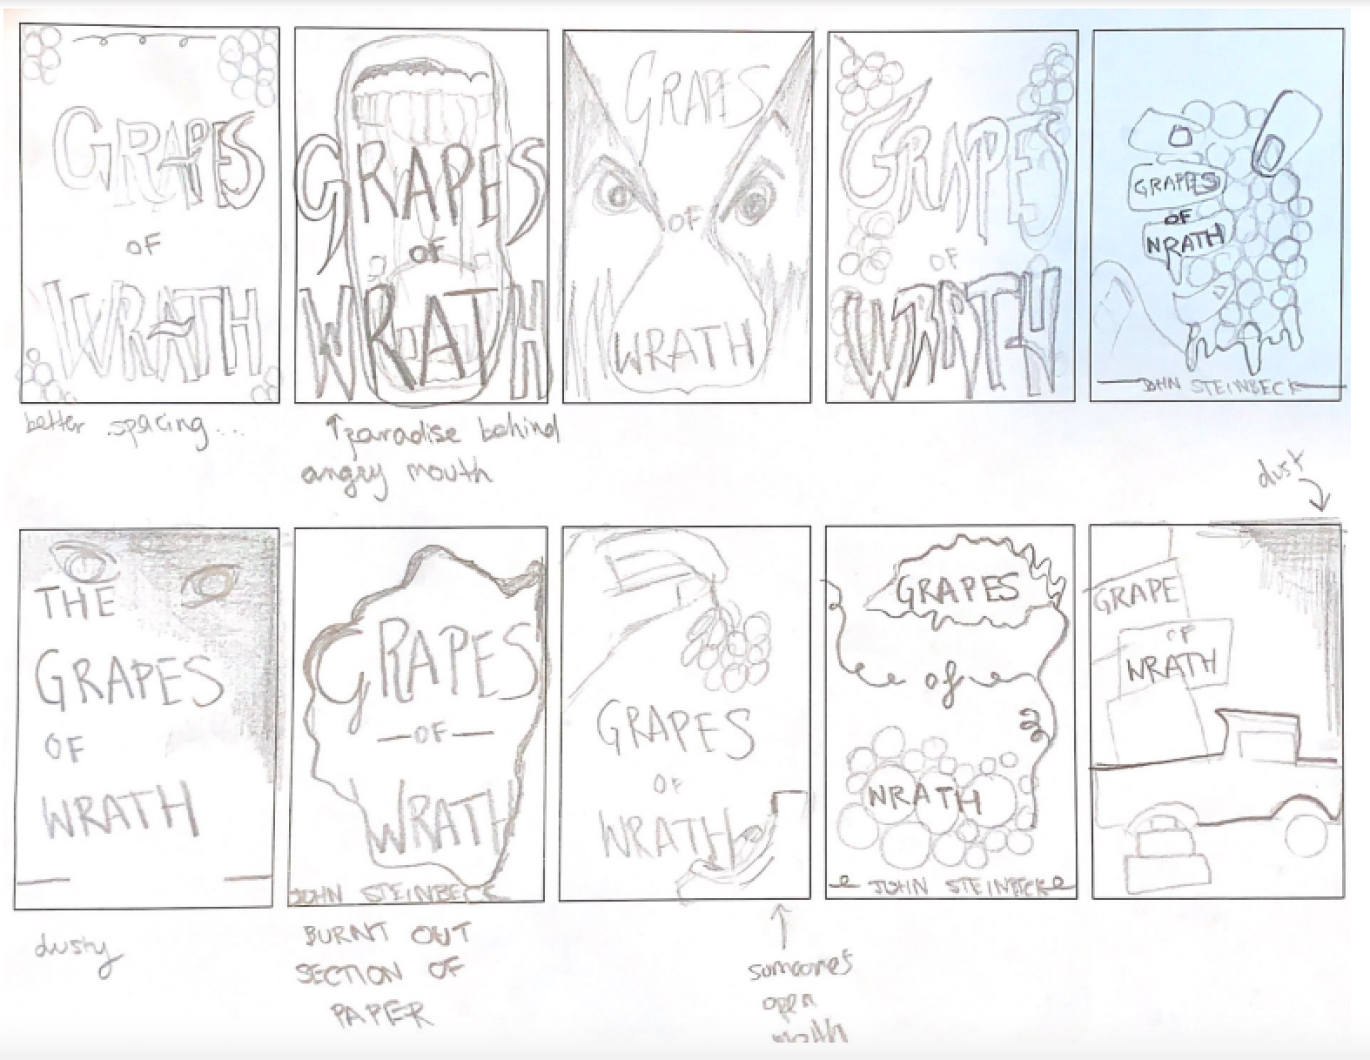 GRAPES
OF
WRATH
better spacing...
GRAPES
OF
WRATH
paradise behind
angry mouth
GRAPES
OF
WRATH
GRAPES
OF
WRATH
GRAPES
OF
WRATH
JOHN STEINBECK
dust
THE
GRAPES
OF
WRATH
dusty
GRAPES
—OF—
WRATH
JOHN STEINBECK
BURNT OUT
SECTION OF
PAPER
GRAPES
OF
WRATH
someones
open
GRAPES
of
WRATH
JOHN STEINBECK
GRAPE
OF
WRATH